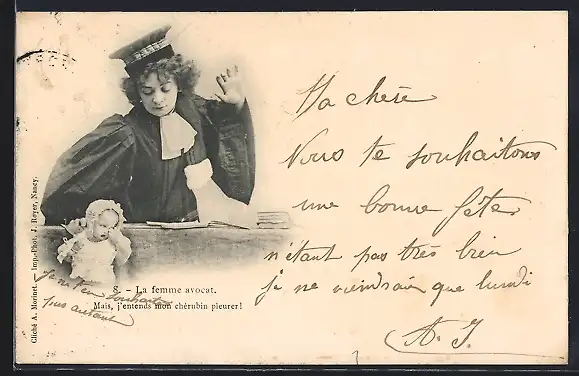 Ma chère
Nous te souhaitons
une bonne fête,
n'étant pas très bien
je ne viendrai que lundi
A. J.
8. - La femme avocat.
Mais, j'entends mon chérubin pleurer!
je t'en souhaite
pas autant
Cliché A. Morinet. — Imp.-Phot. J. Royer, Nancy.